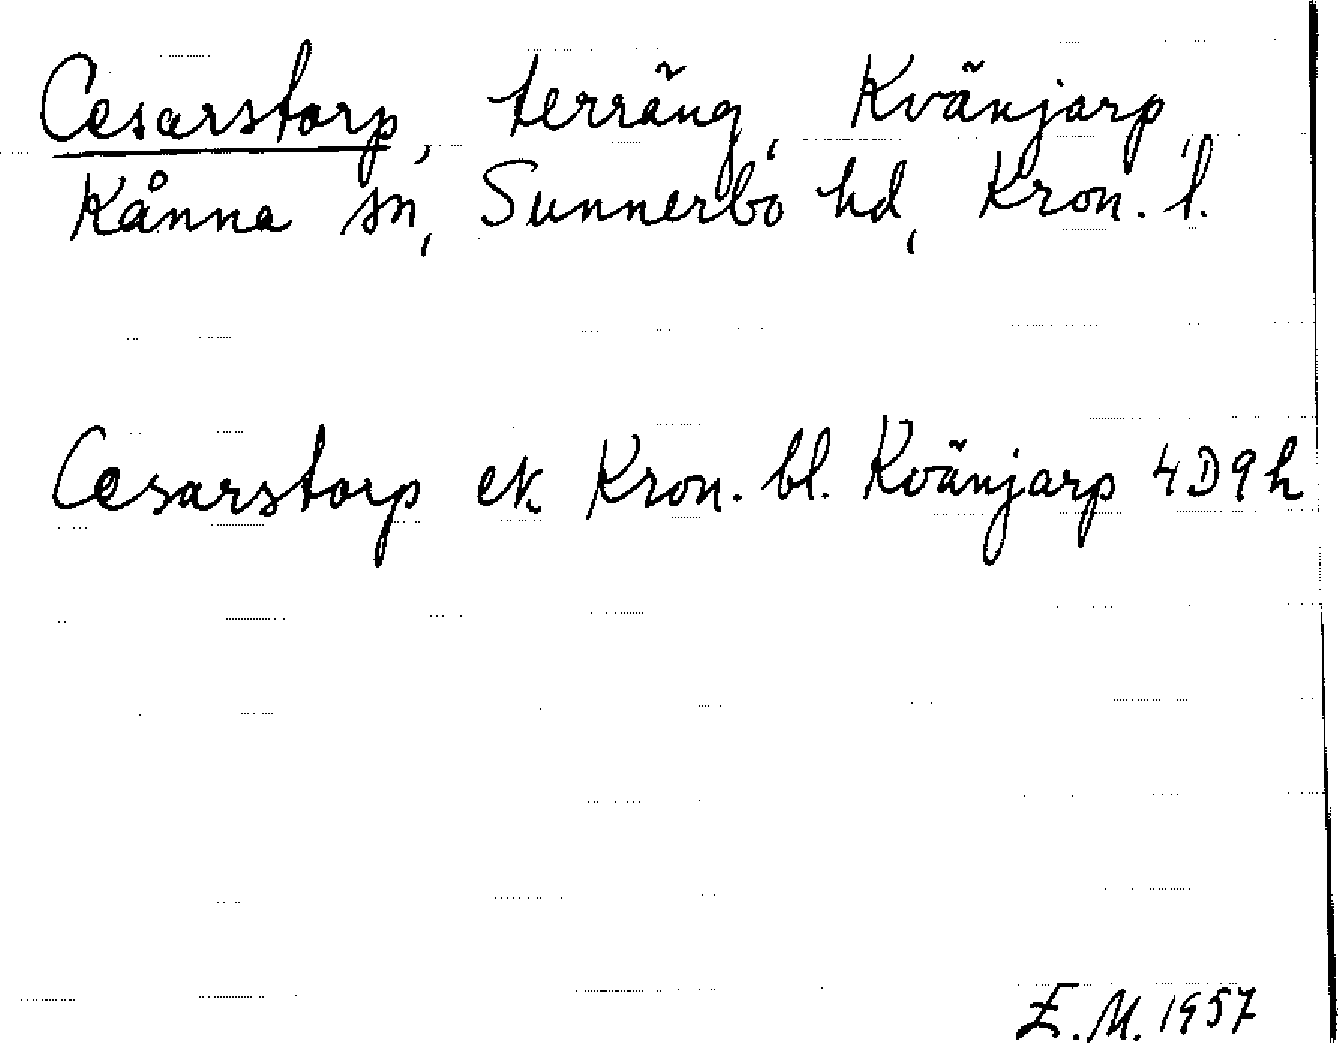 Cesarstorp, terräng, Kvänjarp,
Kånna sn, Sunnerbo hd, Kron. l.
Cesarstorp ek. Kron. bl. Kvänjarp 4D9h
E.M. 1957